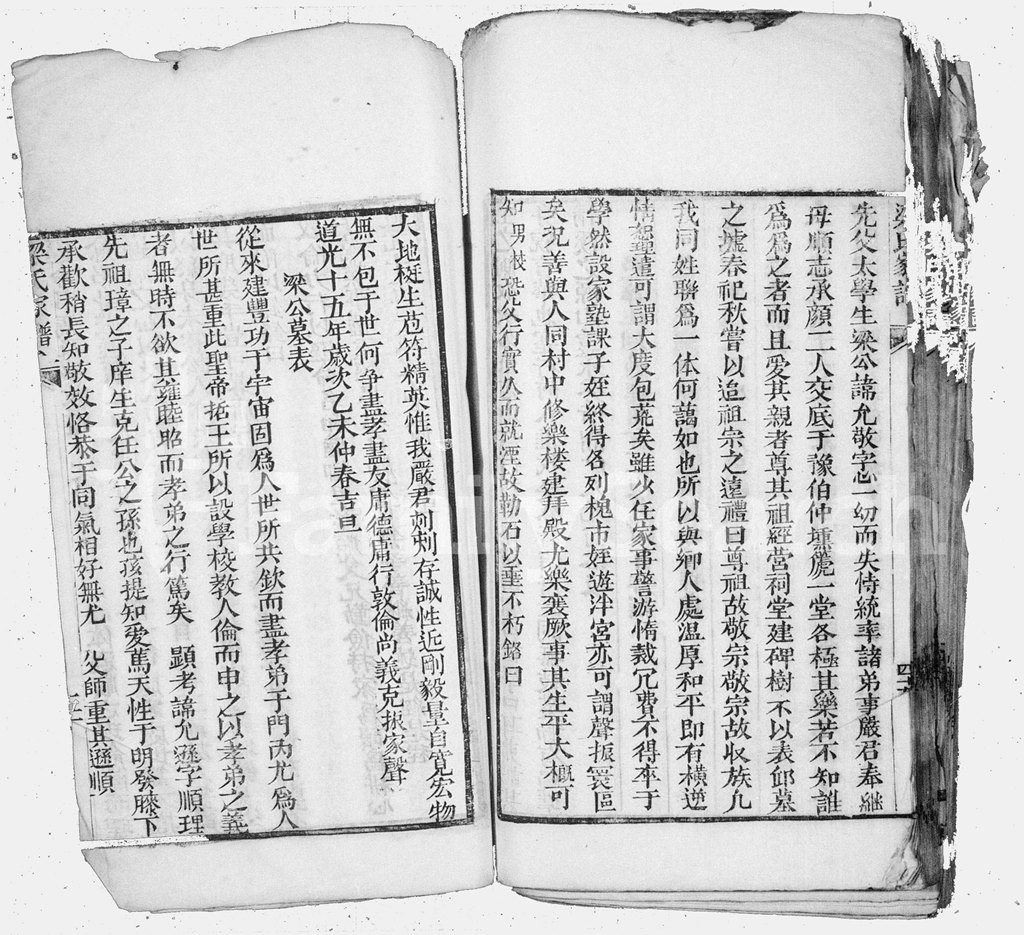 梁氏家譜
先父太學生梁公諱允敬字忘一幼而失恃統率諸弟事嚴君奉繼
母順志承顏二人交底于豫伯仲壎篪一堂各極其樂若不知誰
爲爲之者而且愛其親者尊其祖經營祠堂建碑樹不以表邱墓
之墟春祀秋嘗以追祖宗之遠禮曰尊祖故敬宗敬宗故收族允
我同姓聯爲一体何藹如也所以與鄉人處温厚和平即有橫逆
情恕理遣可謂大度包荒矣雖少任家事警游惰裁冗費不得卒于
學然設家塾課子姪終得各列槐市姪遊泮宮亦可謂聲振寰區
矣況善與人同村中修樂楼建拜殿尤樂襄厥事其生平大概可
知男 恐父行實久而就湮故勒石以垂不朽銘曰
大地挺生苞符精英惟我嚴君刺刺存誠性近剛毅量自寬宏物
無不包于世何争盡孝盡友庸德庸行敦倫尚義克振家聲
道光十五年歲次乙未仲春吉旦
梁公墓表
從來建豐功于宇宙固爲人世所共欽而盡孝弟于門内尤爲人
世所甚重此聖帝哲王所以設學校教人倫而申之以孝弟之義
者無時不欲其雍睦昭而孝弟之行篤矣 顯考諱允遜字順理
先祖璋之子庠生克任公之孫也孩提知愛篤天性于明發膝下
承歡稍長知敬效恪恭于同氣相好無尤 父師重其遜順
梁氏家譜